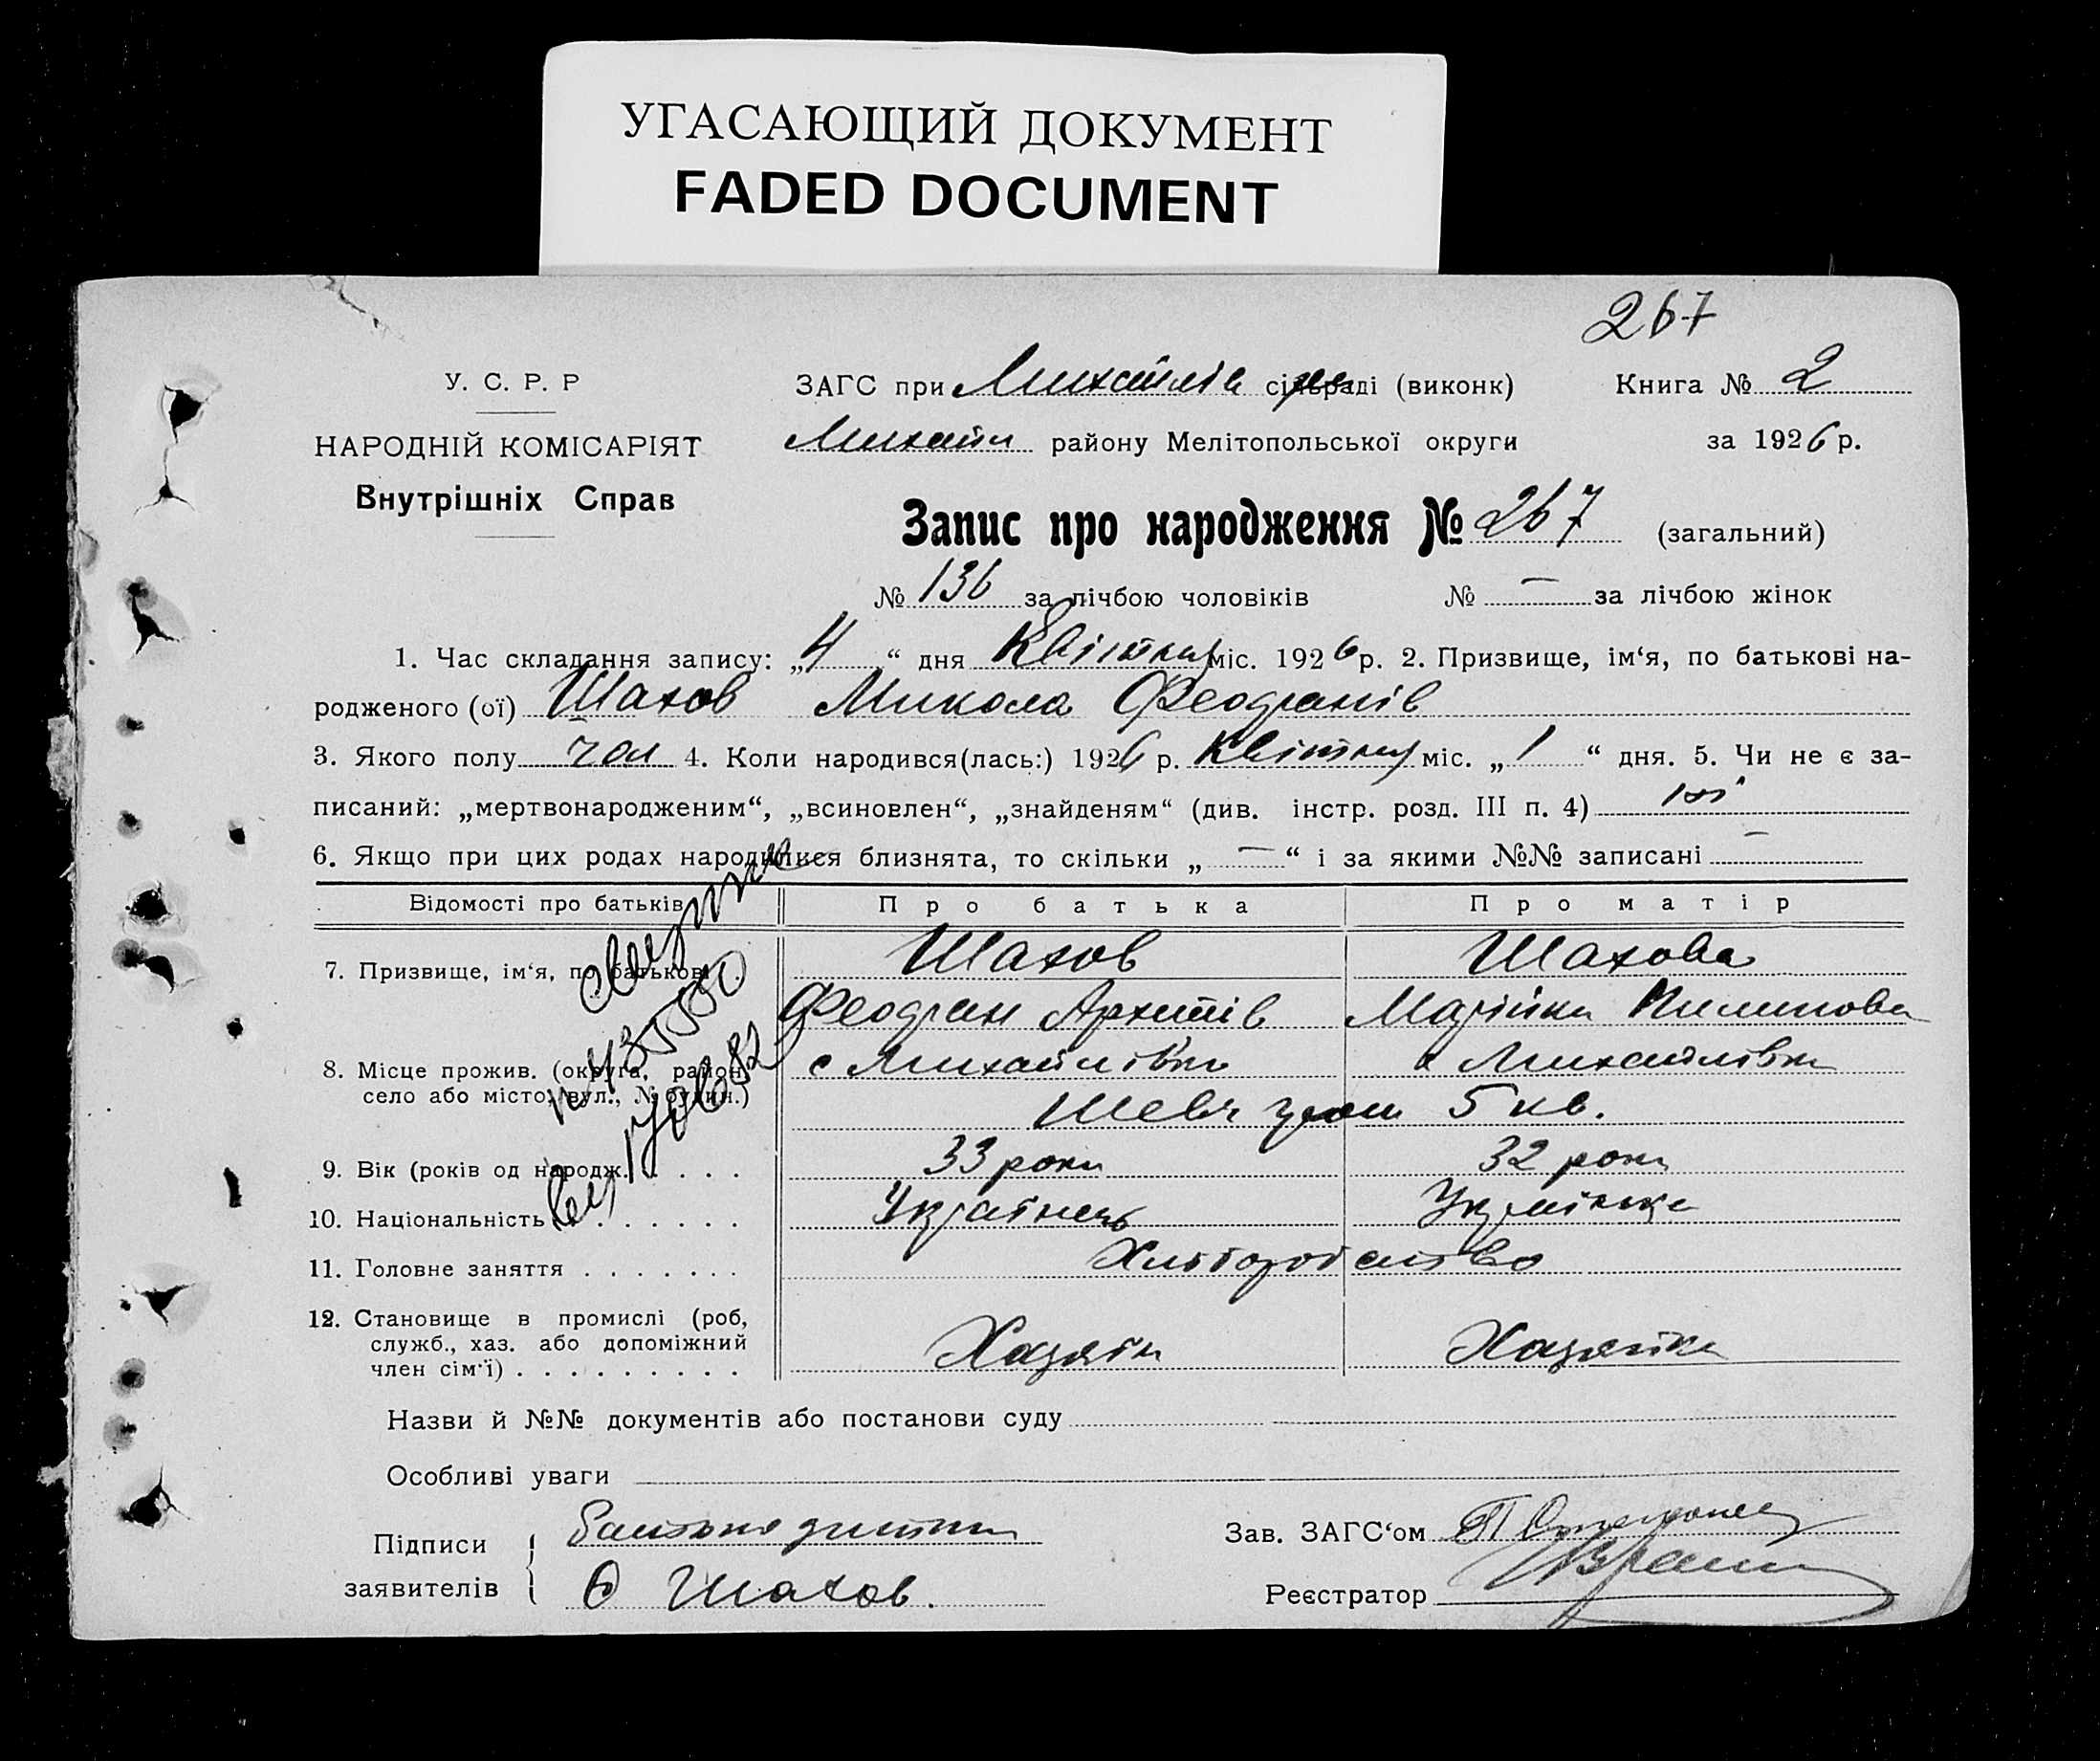 УГАСАЮЩИЙ ДОКУМЕНТ
FADED DOCUMENT
267
У. С. Р. Р
НАРОДНІЙ КОМІСАРІЯТ
Внутрішніх Справ
ЗАГС при Михайлів сільраді (виконк) Книга № 2
Михайл району Мелітопольської округи за 1926 р.
Запис про народження № 267 (загальний)
№ 136 за лічбою чоловіків № — за лічбою жінок
1. Час складання запису: „4“ дня Квітня міс. 1926 р. 2. Призвище, ім‘я, по батькові на-
родженого (ої) Шахов Микола Феофанів
3. Якого полу чол 4. Коли народився(лась:) 1926 р. Квітня міс. „1“ дня. 5. Чи не є за-
писаний: „мертвонародженим“, „всиновлен“, „знайденям“ (див. інстр. розд. III п. 4) ні
6. Якщо при цих родах народилися близнята, то скільки „—“ і за якими №№ записані —
Відомості про батьків Про батька Про матір
7. Призвище, ім‘я, по батькові Шахов Шахова
Феофан Архипів Марійка Пилипова
8. Місце прожив. (округа, район, с Михайлівка с Михайлівка
село або місто, вул., № будин.) Шевч 5 кв.
9. Вік (років од народж. . . . . . 33 роки 32 роки
10. Національність . . . . . . . Українець Українка
11. Головне заняття . . . . . . . Хліборобство
12. Становище в промислі (роб,
служб., хаз. або допоміжний Хазяїн Хазяйка
член сім‘ї) . . . . . . . . .
Назви й №№ документів або постанови суду
Особливі уваги
Підписи Батько дитини Зав. ЗАГС‘ом
заявителів Ф Шахов. Реєстратор